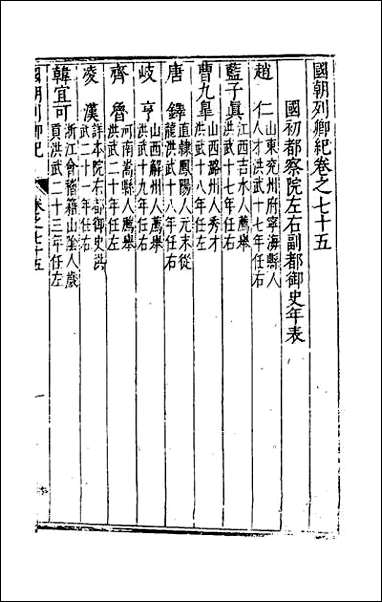 國朝列卿紀卷之七十五
國初都察院左右副都御史年表
趙仁 山東兖州府寧海縣人
人才洪武十七年任右
藍子真 江西吉水人薦舉
洪武十七年任右
曹九臯 山西潞州人秀才
洪武十八年任左
唐鐸 直隸鳳陽人元末從
龍洪武十八年任右
岐亨 山西解州人薦舉
洪武十九年任右
齊魯 河南嵩縣人薦舉
洪武二十年任左
凌漢 詳本院右都御史洪
武二十一年任左
韓宜可 浙江會稽籍山陰人歲
貢洪武二十三年任左
國朝列卿紀 卷之七十五 一